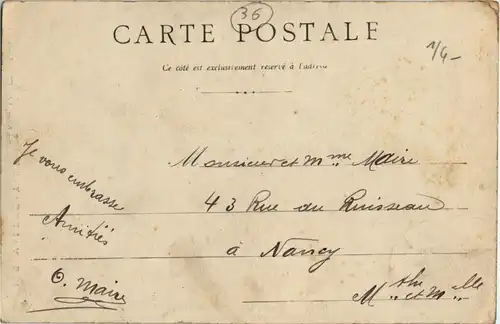 36
CARTE POSTALE
Ce côté est exclusivement réservé à l'adresse
1/6-
Je vous embrasse
Amitiés
O. Maire
Monsieur et Mme Maire
43 Rue du Ruisseau
à Nancy
Mthe et Mlle